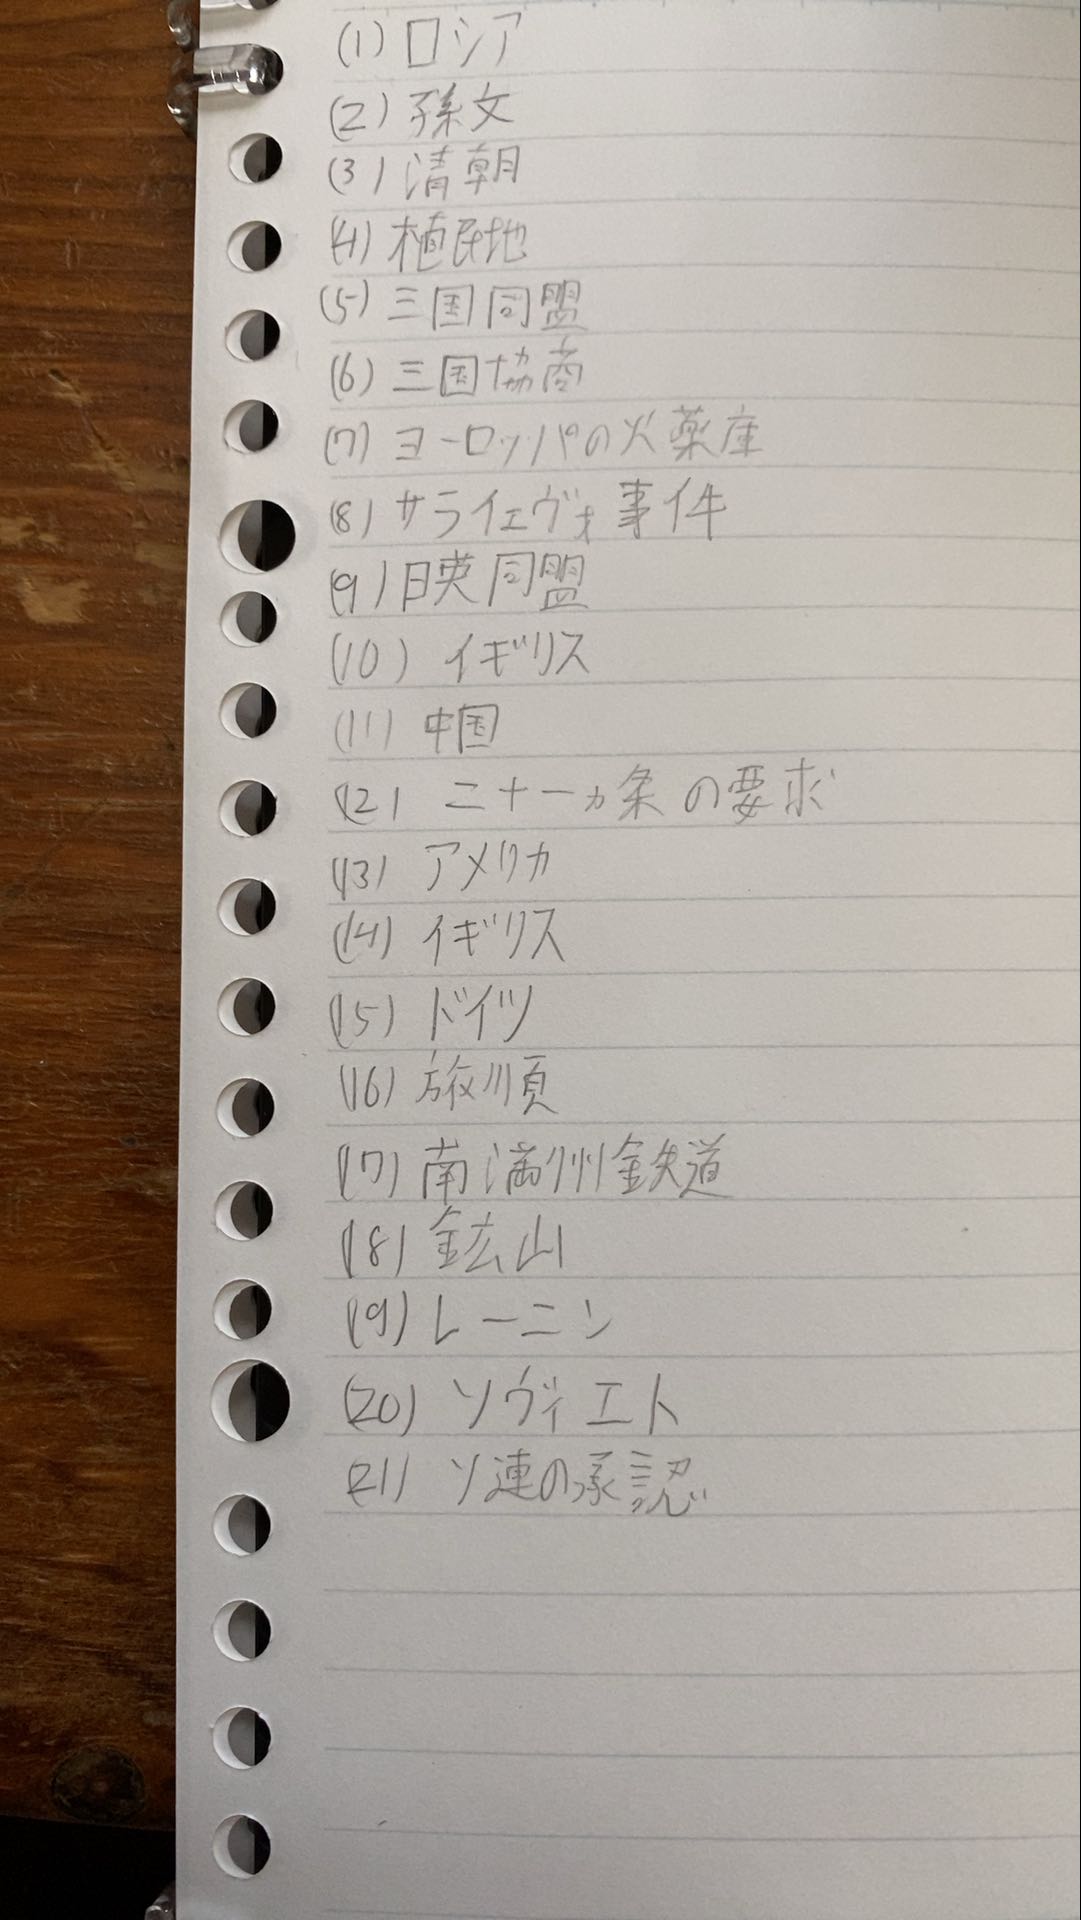 (1) ロシア
(2) 孫文
(3) 清朝
(4) 植民地
(5) 三国同盟
(6) 三国協商
(7) ヨーロッパの火薬庫
(8) サライェヴォ事件
(9) 日英同盟
(10) イギリス
(11) 中国
(12) 二十一ヵ条の要求
(13) アメリカ
(14) イギリス
(15) ドイツ
(16) 旅順
(17) 南満州鉄道
(18) 鉱山
(19) レーニン
(20) ソヴィエト
(21) ソ連の承認